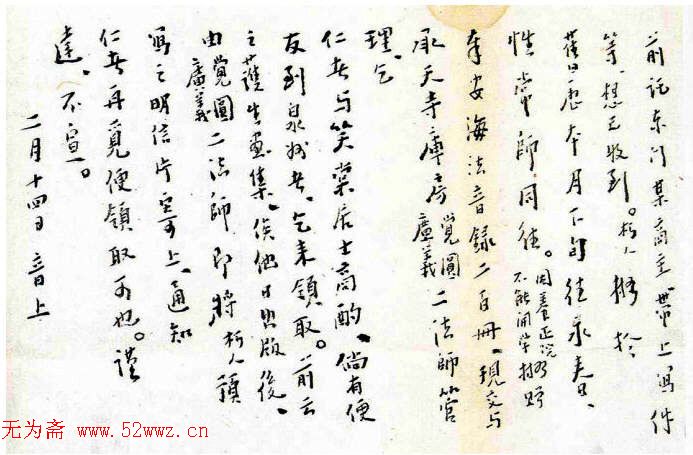 前託东门某商主带上写件
等、想已收到。朽人拟於
旧历本月下旬往永春、
性常师同往。因养正院
不能开学拟
安海法音録二百册、现交与
承天寺库房觉圆二法师管
广义
理、乞
仁者与笑棠居士商酌、倘有便
友到泉州者、乞来领取。前云
之護生画集、俟他日出版後、
由觉圆二法师即将朽人预
广义
写之明信片寄上、通知
仁者再觅便领取可也。谨
達、不宣。
二月十四日 音上
无为斋 www.52wwz.cn